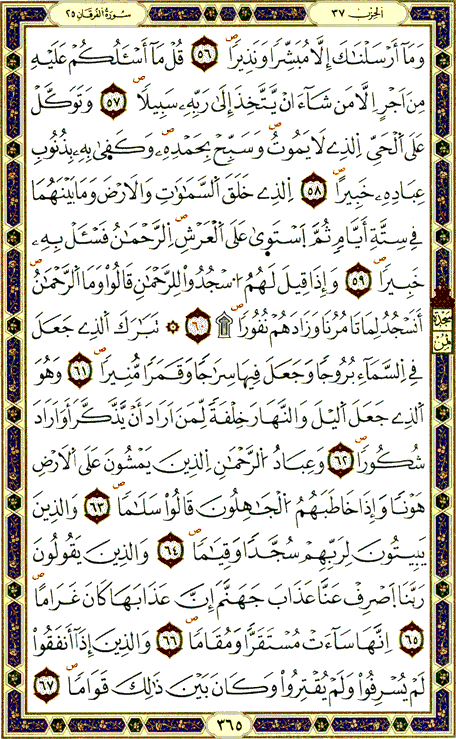 الحزب ٣٧
سُورَةُ الفُرْقَانِ ٢٥
وَمَآ أَرْسَلْنَٰكَ إِلَّا مُبَشِّرًا وَنَذِيرًا ٥٦ قُلْ مَآ أَسْـَٔلُكُمْ عَلَيْهِ
مِنَ اَجْرٍ اِلَّا مَن شَآءَ انْ يَّتَّخِذَ إِلَىٰ رَبِّهِۦ سَبِيلًا ٥٧ وَتَوَكَّلْ
عَلَى اَلْحَيِّ اِلذِے لَا يَمُوتُ وَسَبِّحْ بِحَمْدِهِۦ وَكَفَىٰ بِهِۦ بِذُنُوبِ
عِبَادِهِۦ خَبِيرًا ٥٨ اِلذِے خَلَقَ اَلسَّمَٰوَٰتِ وَالَارْضَ وَمَا بَيْنَهُمَا
فِے سِتَّةِ أَيَّامٍ ثُمَّ اَسْتَوَىٰ عَلَى اَلْعَرْشِ اِلرَّحْمَٰنُ فَسْـَٔلْ بِهِۦ
خَبِيرًا ٥٩ وَإِذَا قِيلَ لَهُمُ اُسْجُدُواْ لِلرَّحْمَٰنِ قَالُواْ وَمَا اَلرَّحْمَٰنُ
أَنَسْجُدُ لِمَا تَامُرُنَا وَزَادَهُمْ نُفُورًا ۩ ٦٠ ۞ تَبَٰرَكَ اَلذِے جَعَلَ
فِے اِلسَّمَآءِ بُرُوجًا وَجَعَلَ فِيهَا سِرَٰجًا وَقَمَرًا مُّنِيرًا ٦١ وَهُوَ
اَلذِے جَعَلَ اَليْلَ وَالنَّهَارَ خِلْفَةً لِّمَنَ اَرَادَ أَنْ يَّذَّكَّرَ أَوَ اَرَادَ
شُكُورًا ٦٢ وَعِبَادُ اُلرَّحْمَٰنِ اِلذِينَ يَمْشُونَ عَلَى اَلَارْضِ
هَوْنًا وَإِذَا خَاطَبَهُمُ اُلْجَٰهِلُونَ قَالُواْ سَلَٰمًا ٦٣ وَالذِينَ
يَبِيتُونَ لِرَبِّهِمْ سُجَّدًا وَقِيَٰمًا ٦٤ وَالذِينَ يَقُولُونَ
رَبَّنَا اَصْرِفْ عَنَّا عَذَابَ جَهَنَّمَ إِنَّ عَذَابَهَا كَانَ غَرَامًا
٦٥ اِنَّهَا سَآءَتْ مُسْتَقَرًّا وَمُقَامًا ٦٦ وَالذِينَ إِذَآ أَنفَقُواْ
لَمْ يُسْرِفُواْ وَلَمْ يُقْتِرُواْ وَكَانَ بَيْنَ ذَٰلِكَ قَوَامًا ٦٧
سجدة
٣٦٥